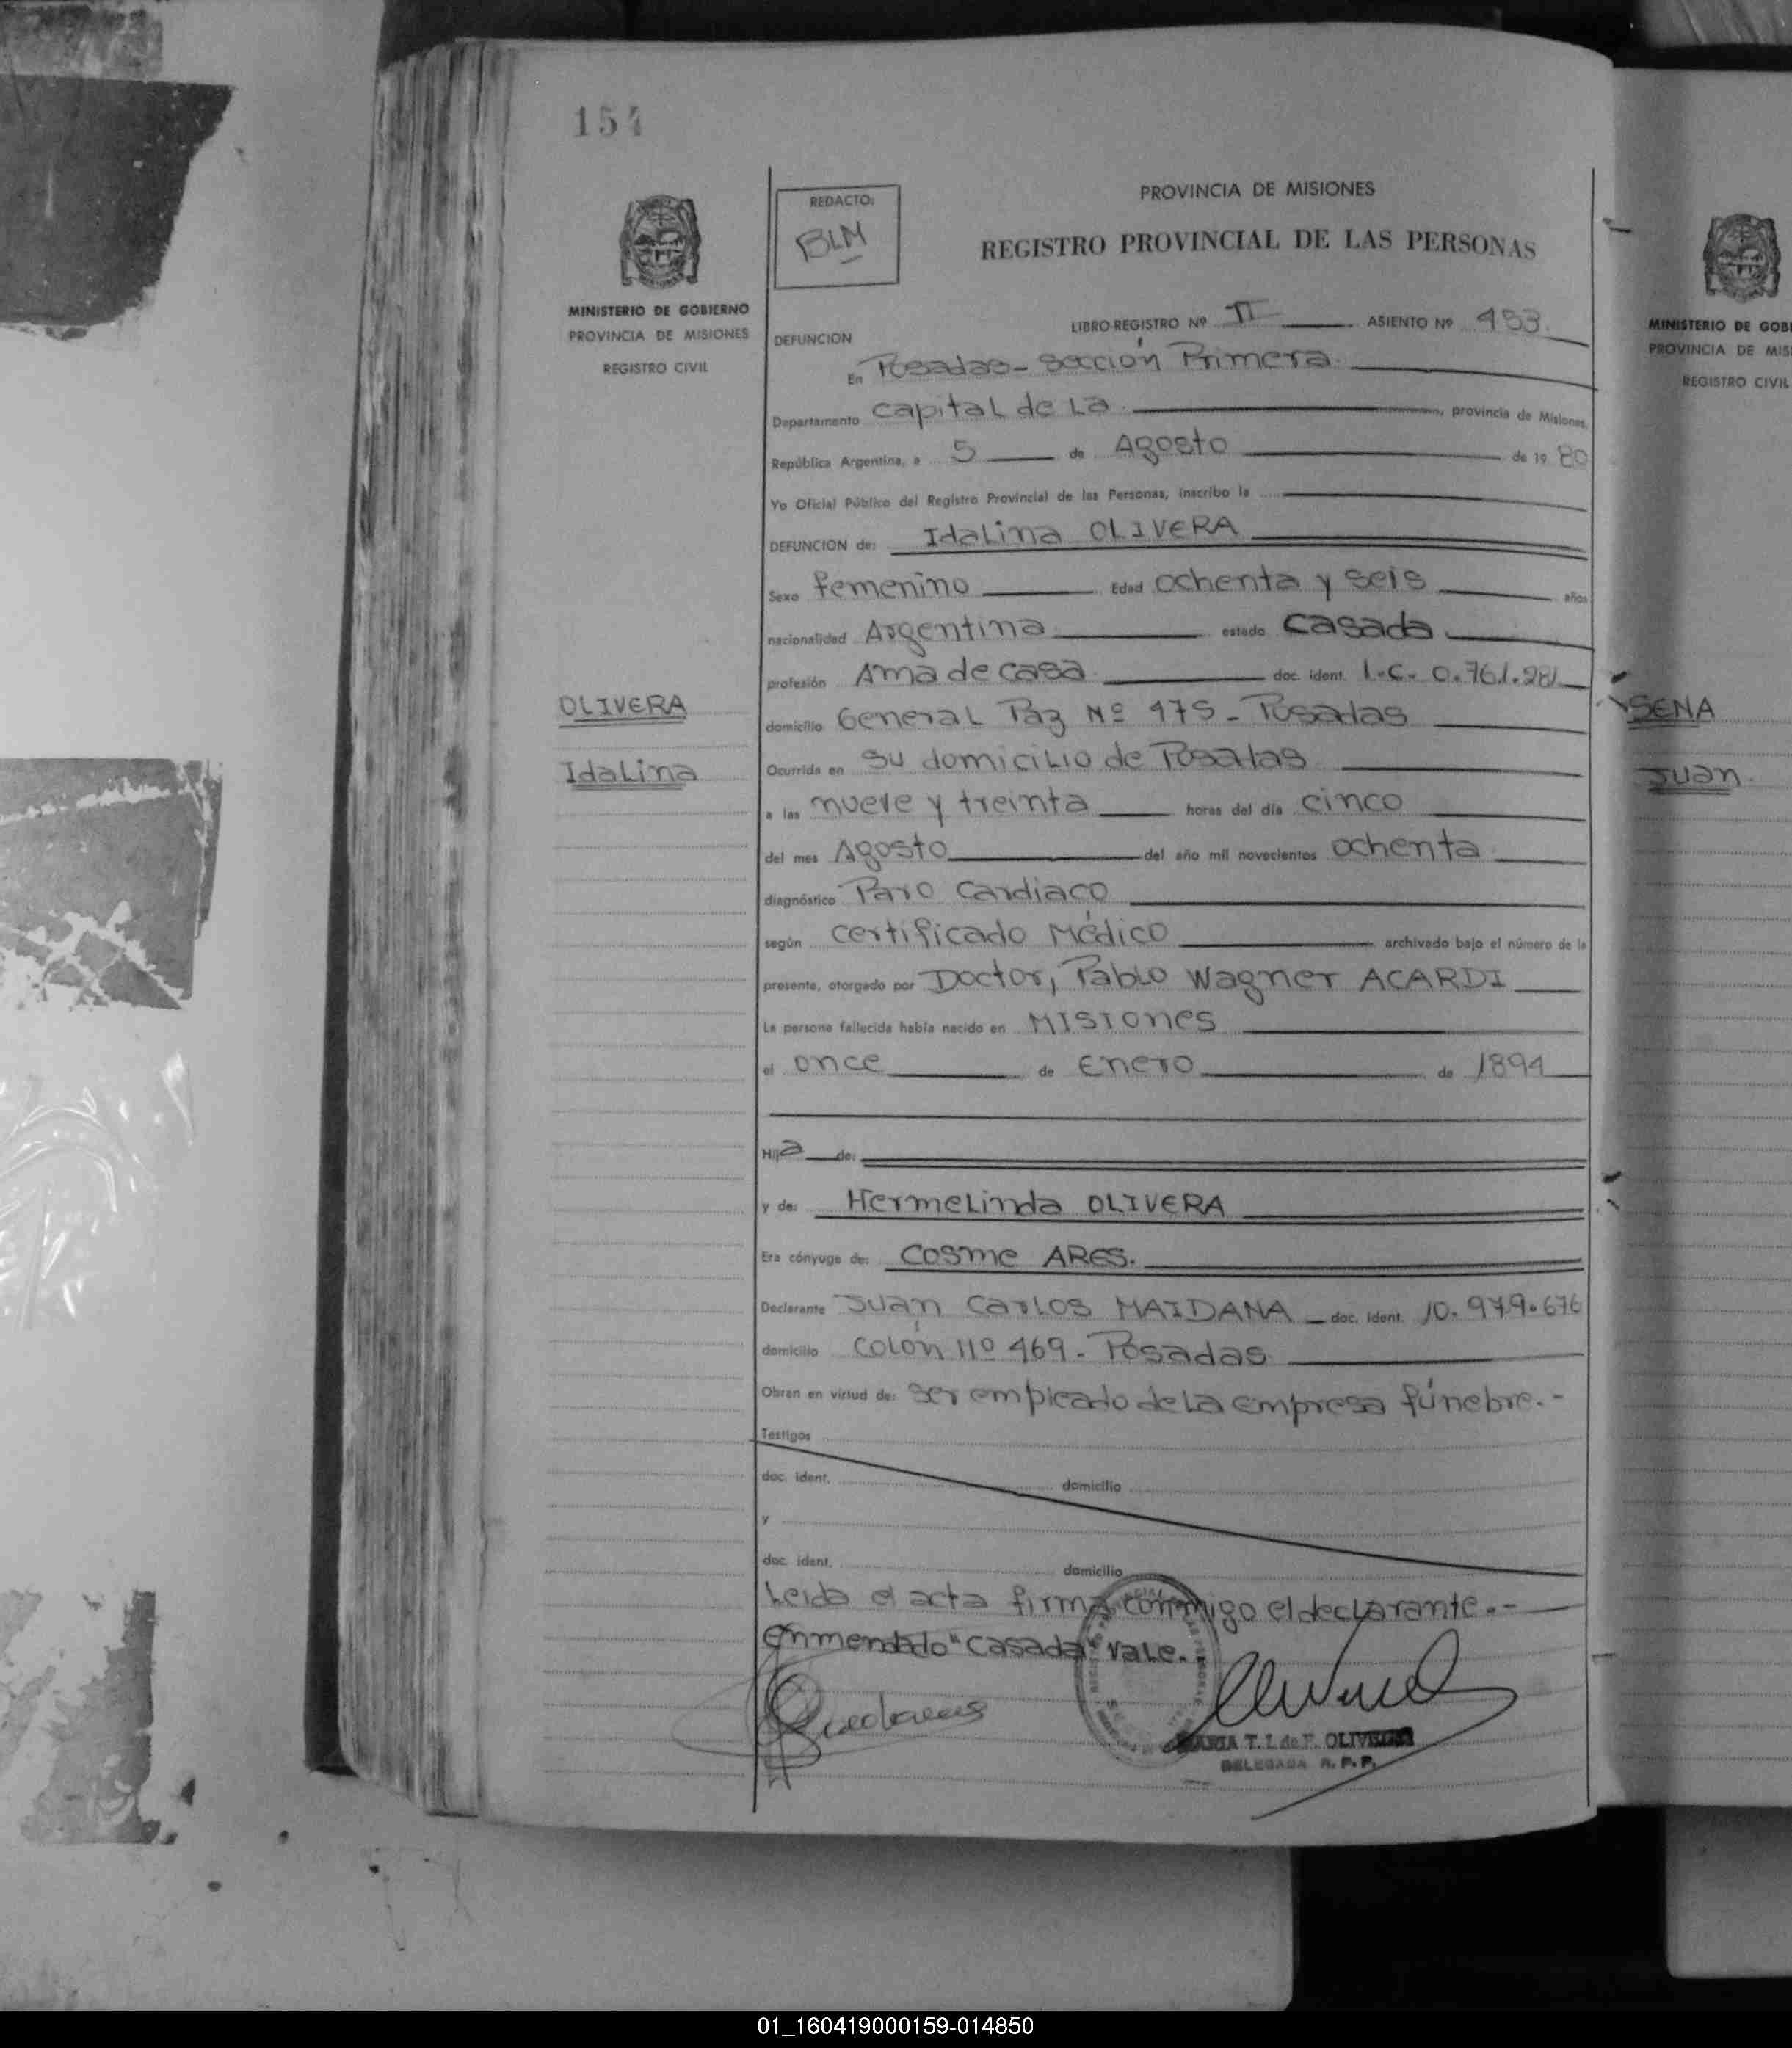 154
MINISTERIO DE GOBIERNO
PROVINCIA DE MISIONES
REGISTRO CIVIL
OLIVERA
Idalina
REDACTO:
BLM
PROVINCIA DE MISIONES
REGISTRO PROVINCIAL DE LAS PERSONAS
DEFUNCION
LIBRO-REGISTRO Nº II ASIENTO Nº 453.
En Posadas- sección Primera.
Departamento capital de La, provincia de Misiones,
República Argentina, a 5 de Agosto de 19 80
Yo Oficial Público del Registro Provincial de las Personas, inscribo la
DEFUNCION de: Idalina OLIVERA
Sexo femenino Edad ochenta y seis años
nacionalidad Argentina estado casada
profesión Ama de casa. doc. ident. L.C. 0.761.281
domicilio General Paz Nº 475 - Posadas
Ocurrida en su domicilio de Posadas
a las nueve y treinta horas del día cinco
del mes Agosto del año mil novecientos ochenta
diagnóstico Paro Cardiaco
según certificado Médico archivado bajo el número de la
presente, otorgado por Doctor, Pablo Wagner ACARDI
La persona fallecida había nacido en MISIones
el once de Enero de 1894
Hija de:
y de: HermeLinda OLIVERA
Era cónyuge de: Cosme ARES.
Declarante Juan Carlos MAIDANA doc. ident. 10.979.676
domicilio Colón nº 469 - Posadas.
Obran en virtud de: ser empleado de la empresa fúnebre.-
Testigos
doc. ident. domicilio
y
doc. ident. domicilio
Leida el acta firma conmigo el declarante.-
Enmendado "casada" vale.
MARIA T. I. de F. OLIVEIRA
DELEGADA R. P. P.
MINISTERIO DE GOBI
PROVINCIA DE MIS
REGISTRO CIVIL
SENA
Juan.
01_160419000159-014850